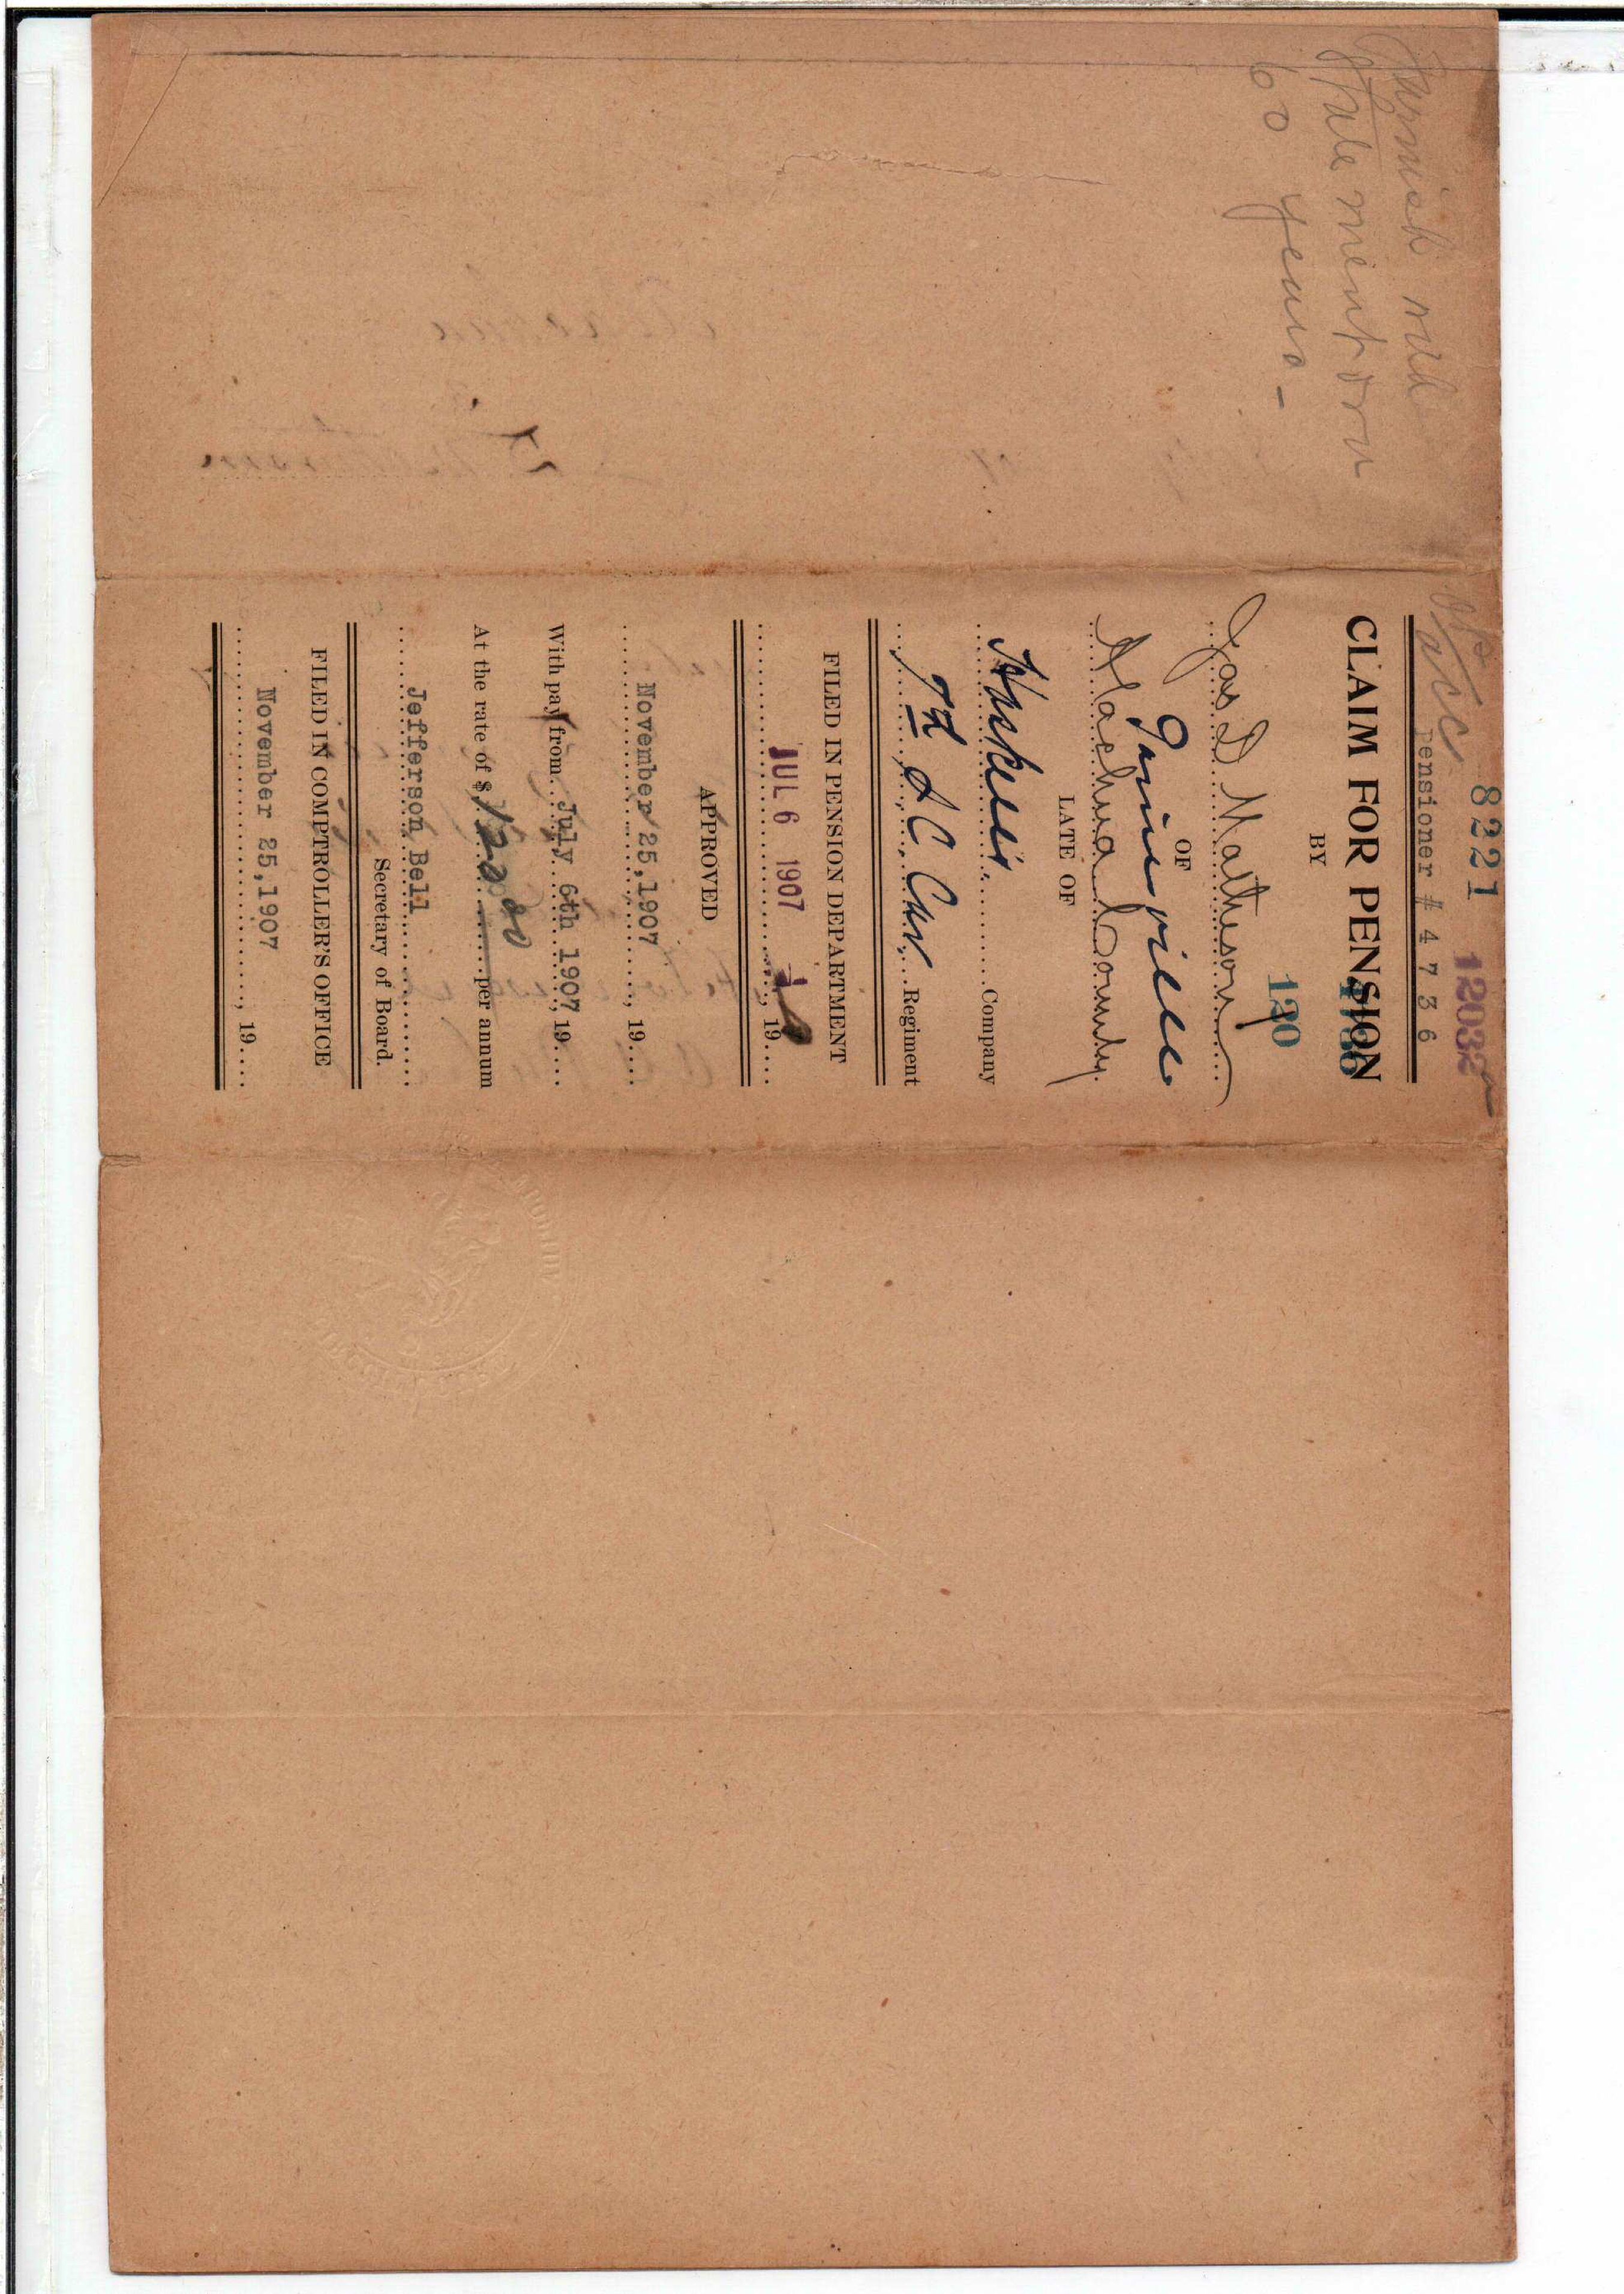 Furnish
Statement
60 years -
8221 12032
Pensioner # 4 7 3 6
CLAIM FOR PENSION
4736
BY
120
Jas D Matheson
OF
Gainesville
Alachua County
LATE OF
Company
7th S C Cav Regiment
FILED IN PENSION DEPARTMENT
JUL 6 1907 , 19....
APPROVED
November 25,1907 , 19....
With pay from July 6th 1907, 19....
At the rate of $ 120.00 per annum
Jefferson Bell
Secretary of Board.
FILED IN COMPTROLLER'S OFFICE
November 25,1907 , 19....